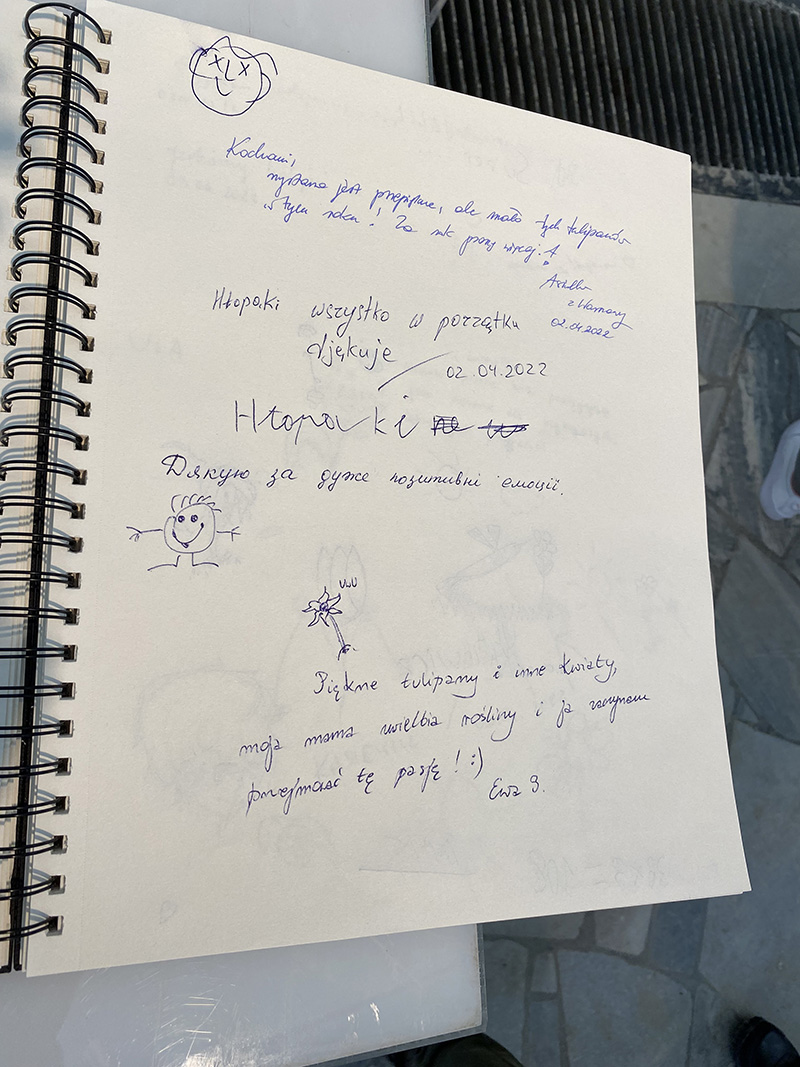 Kochani,
wystawa jest przepiękna, ale mało tych tulipanów
w tym roku! Za rok proszę więcej!
z Warszawy
02.04.2022
Hłopaki wszystko w porządku
djękuje
02.04.2022
Hłopaki
Дякую за дуже позитивні емоції.
UwU
Piękne tulipany i inne kwiaty,
moja mama uwielbia rośliny i ja zaczynam
przejmować tę pasję! :)
Ewa